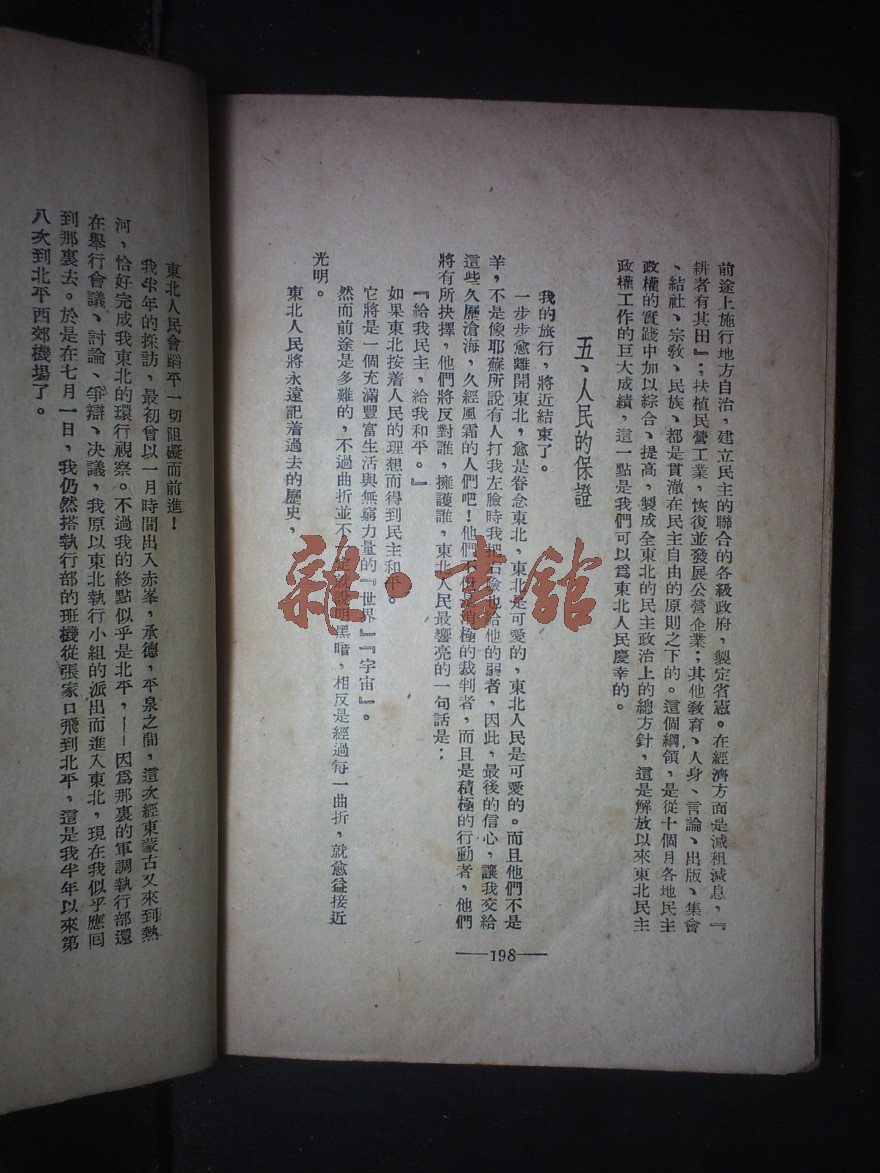 前途上施行地方自治，建立民主的聯合的各級政府，製定省憲。在經濟方面是減租減息，『
耕者有其田』；扶植民營工業，恢復並發展公營企業；其他敎育、人身、言論、出版、集會
、結社、宗敎、民族、都是貫澈在民主自由的原則之下的。這個綱領，是從十個月各地民主
政權的實踐中加以綜合、提高，製成全東北的民主政治上的總方針，這是解放以來東北民主
政權工作的巨大成績，這一點是我們可以爲東北人民慶幸的。
五、人民的保證
我的旅行，將近結束了。
一步步愈離開東北，愈是眷念東北，東北是可愛的，東北人民是可愛的。而且他們不是
羊，不是像耶蘇所說有人打我左臉時我把右臉也給他的弱者，因此，最後的信心，讓我交給
這些久歷滄海，久經風霜的人們吧！他們不但是消極的裁判者，而且是積極的行動者，他們
將有所抉擇，他們將反對誰，擁護誰，東北人民最響亮的一句話是：
『給我民主，給我和平。』
如果東北按着人民的理想而得到民主和平。
它將是一個充滿豐富生活與無窮力量的『世界』『宇宙』。
然而前途是多難的，不過曲折並不說明黑暗，相反是經過每一曲折，就愈益接近
光明。
東北人民將永遠記着過去的歷史，
—198—
東北人民會蹈平一切阻礙而前進！
我半年的採訪，最初會以一月時間出入赤峯，承德，平泉之間，這次經東蒙古又來到熱
河，恰好完成我東北的環行視察。不過我的終點似乎是北平，——因爲那裏的軍調執行部還
在舉行會議、討論、爭辯、決議，我原以東北執行小組的派出而進入東北，現在我似乎應囘
到那裏去。於是在七月一日，我仍然搭執行部的班機從張家口飛到北平，這是我半年以來第
八次到北平西郊機場了。
雜·書館